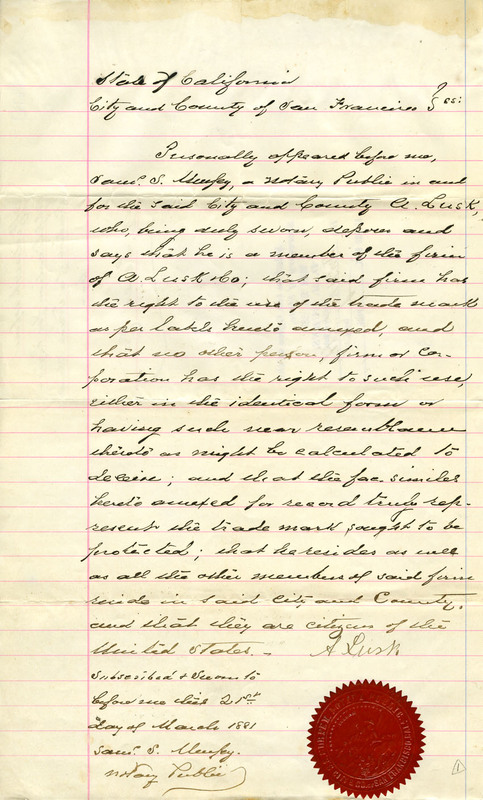 State of California
City and County of San Francisco } ss:
Personally appeared before me,
Saml. S. Murfey, a Notary Public in and
for the said City and County A. Lusk,
who, being duly sworn, deposes and
says that he is a member of the firm
of A. Lusk & Co; that said firm has
the right to the use of the trade mark
as per labels hereto annexed, and
that no other person, firm or Cor-
poration has the right to such use,
either in the identical form or
having such near resemblance
thereto as might be calculated to
deceive; and that the fac similes
hereto annexed for record truly rep-
resent the trade mark sought to be
protected; that he resides as well
as all the other members of said firm
reside in said City and County,
and that they are citizens of the
United States. -
A Lusk
Subscribed & Sworn to
before me this 21st
day of March 1881
Saml. S. Murfey.
Notary Public
1